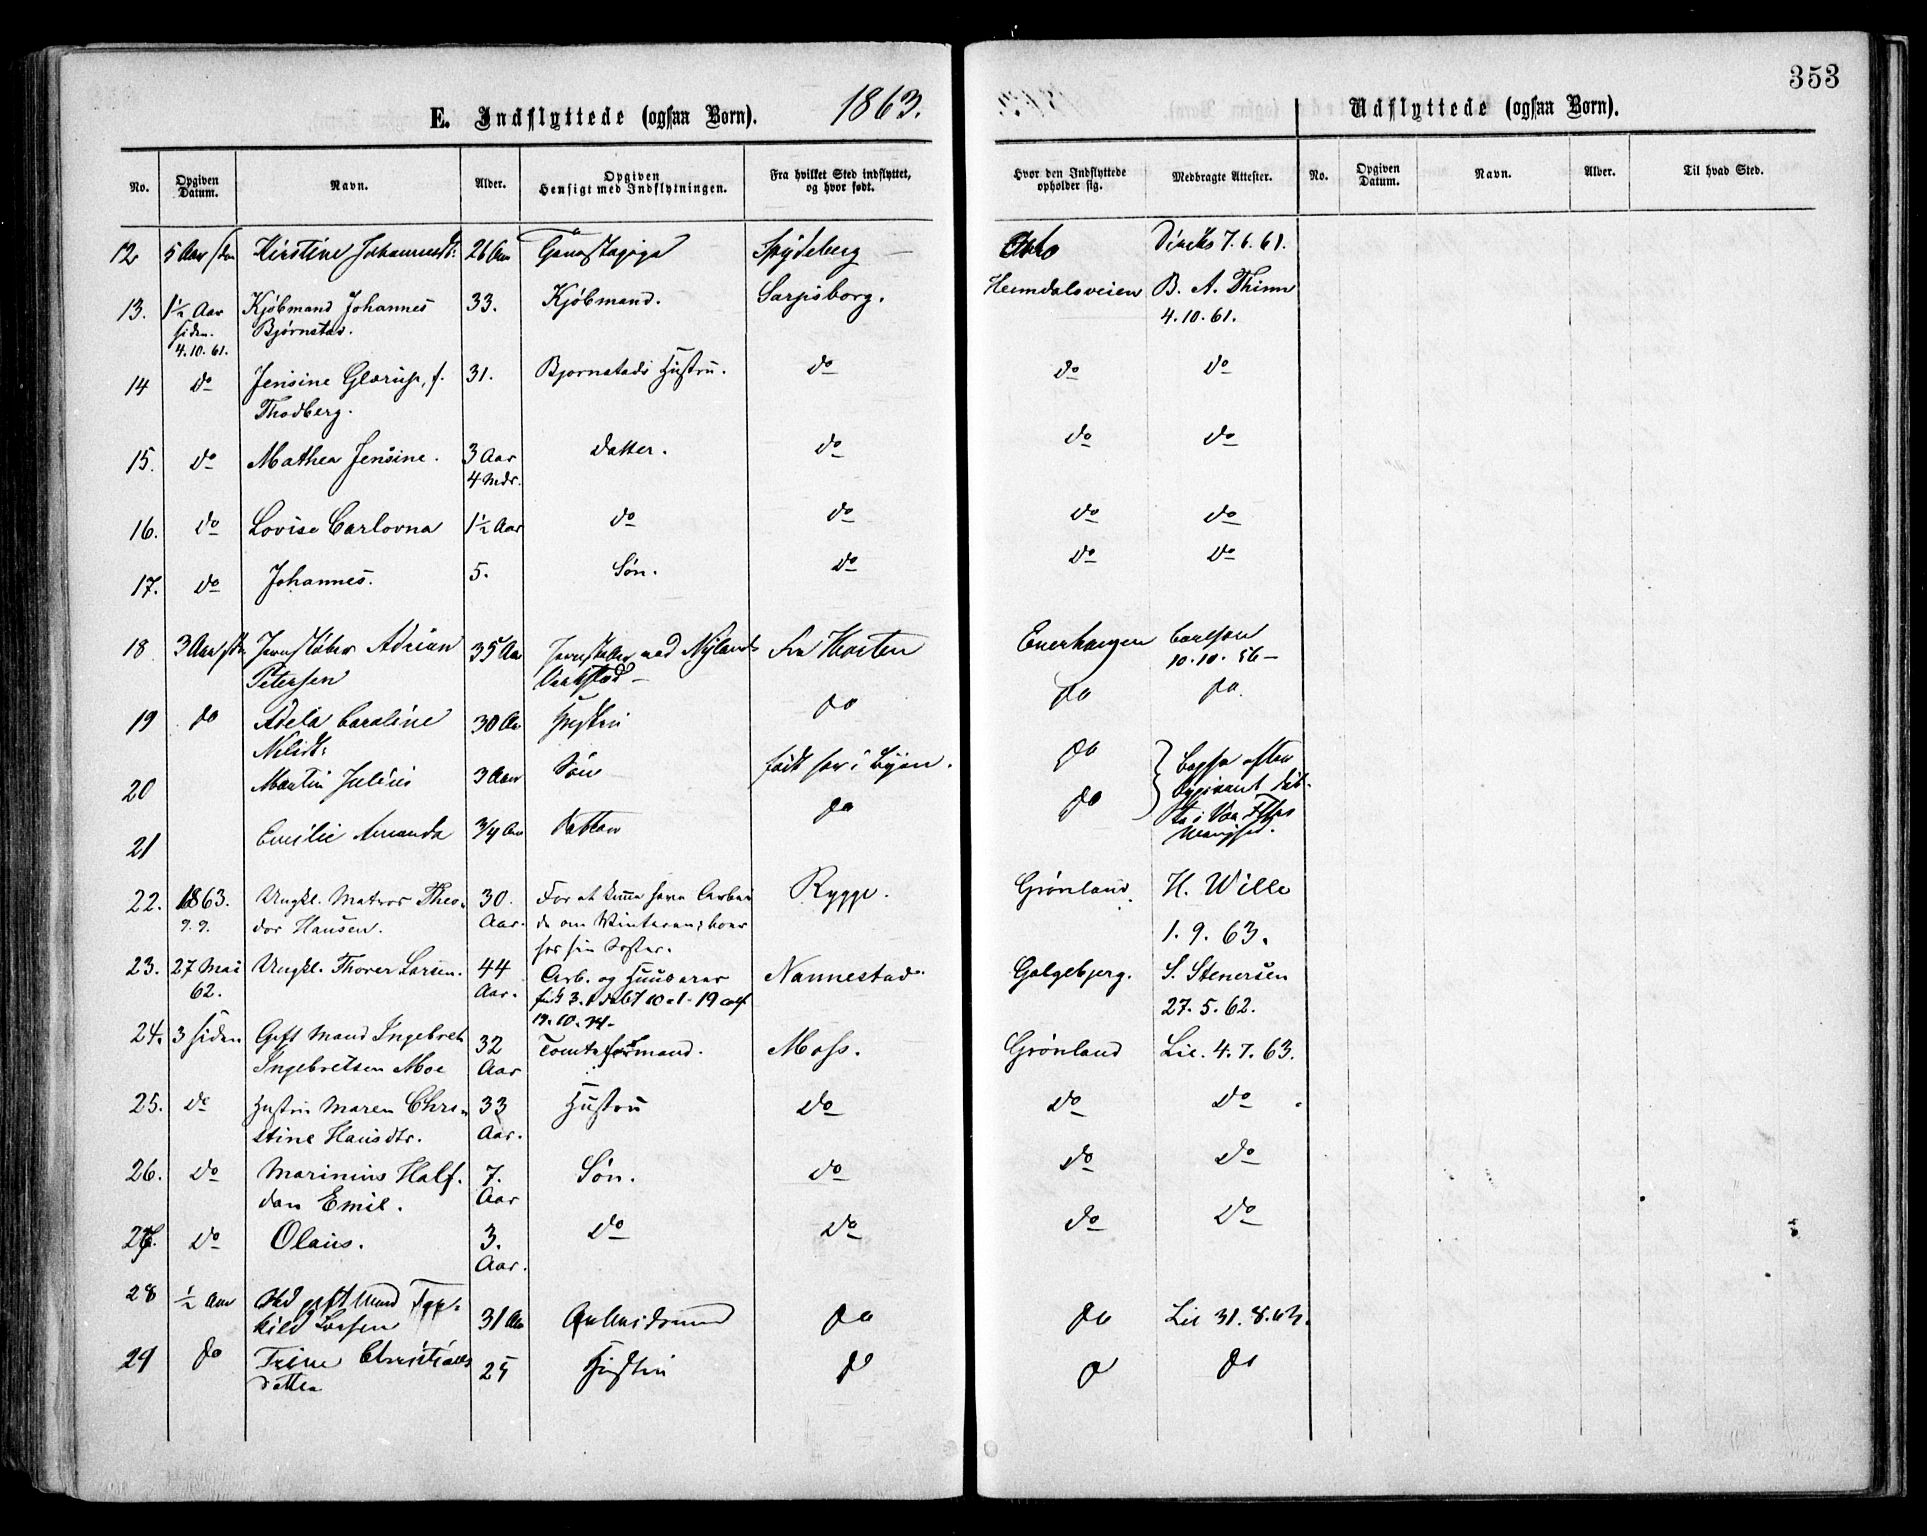 353
E. Indflyttede (ogsaa Børn). 1863.
Udflyttede (ogsaa Børn).
No. Opgiven Datum. Navn. Alder. Opgiven Hensigt med Indflytningen. Fra hvilket Sted indflyttet, og hvor født. Hvor den Indflyttede opholder sig. Medbragte Attester. No. Opgiven Datum. Navn. Alder. Til hvad Sted.
12. 5 Aar siden Kirstine Johannesdt: 26 Aar Spydeberg Oslo 7.6.61.
13. 1½ Aar Kjöbmand Johannes 33. Kjöbmand. Sarpsborg. Heimdalsveien B. A. Thinn
siden. Bjørnstad. 4.10.61.
4.10.61.
14 do Jensine Glærup, f. 31. Bjornstads Hustru. do do do
Thodberg.
15. do Mathea Jensine. 3 Aar Datter. do do do
4 Mdr.
16. do Lovise Carlovna 1½ Aar do do do do
17. do Johannes. 5. Søn. do do do
18 3 Aar sid. Adrian 35 Aar ved Nylands Fra Horten Enerhaugen Carlsen
Petersen Værksted 10.10.56
19 do Adela Caroline 30 Aar Hustru do do do.
Nilsdt:
20 Martin Julius 3 Aar Søn født her i Byen. do
21 Emilie Amanda 3/4 Aar Datter do do
22. 1863. Ungkl. Matros Theo- 30. For at kunne have Arbei- Rygge. Grønland. H. Wille
9.9. dor Hansen. Aar. de om Winteren; boer 1.9.63.
hos sin Søster.
23. 27 Mai Ungkl. Thorer Larsen. 44 Arb. og Huusarar Nannestad. Galgebjerg. S. Stenersen
62. Aar. 27.5.62.
24. 3 siden Gift Mand Ingebret 32 Tomteformand. Moss. Grønland Lie. 4.7.63.
Ingebretsen Moe Aar
25. do Hustru Maren Chri- 33 Hustru do do do
stine Hansdtr. Aar.
26. do Marinius Half- 7. Søn. do do do
dan Emil. Aar
27. do Olaus. 3. do do do do
Aar.
28 ½ Aar gift Mand 31 Aar Arbeidsmand do do Lie 31.8.63.
Larsen
29 do Trine Christians 25 Hustru do do do
datter